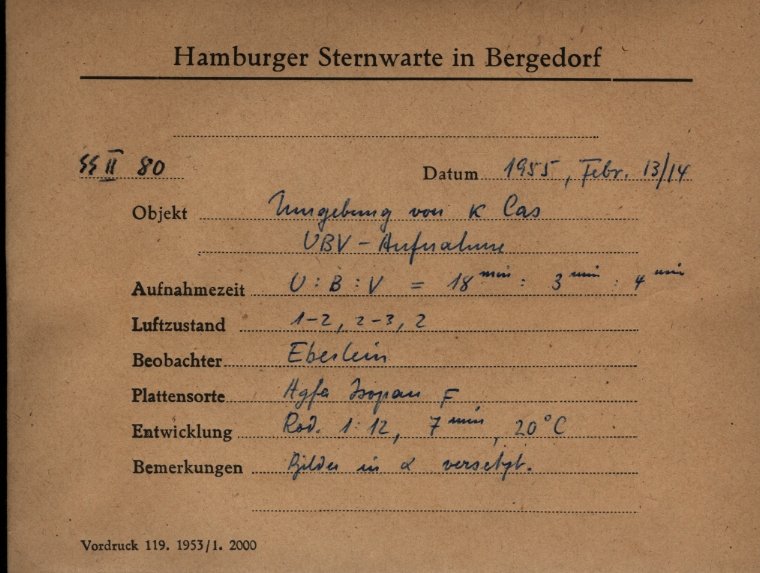 Hamburger Sternwarte in Bergedorf
SS II 80 Datum 1955, Febr. 13/14
Objekt Umgebung von κ Cas
UBV-Aufnahme
Aufnahmezeit U : B : V = 18 min : 3 min : 4 min
Luftzustand 1-2, 2-3, 2
Beobachter Eberlein
Plattensorte Agfa Isopan F
Entwicklung Rod. 1:12, 7 min, 20°C
Bemerkungen Bilder in α versetzt.
Vordruck 119. 1953/1. 2000